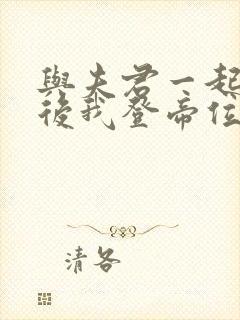 與夫君一起
後我登帝位
清各